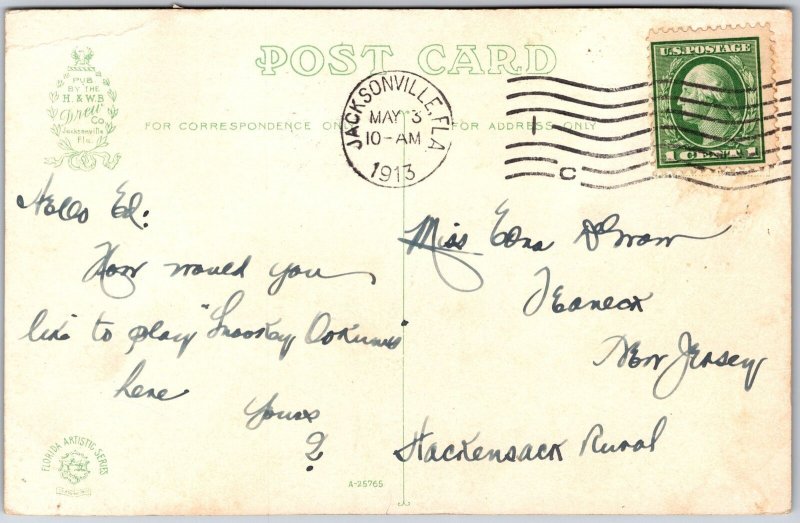 POST CARD
PUB
BY THE
H. & W.B
Drew
CO.
Jacksonville
Fla.
FOR CORRESPONDENCE ONLY
FOR ADDRESS ONLY
JACKSONVILLE, FLA
MAY 3
10-AM
1913
C
U.S. POSTAGE
1 CENT 1
Hello Ed:
How would you
like to play "Snookey Ookums"
here
Yours
?
Miss Edna
Teaneck
New Jersey
Hackensack Rural
FLORIDA ARTISTIC SERIES
A-25765